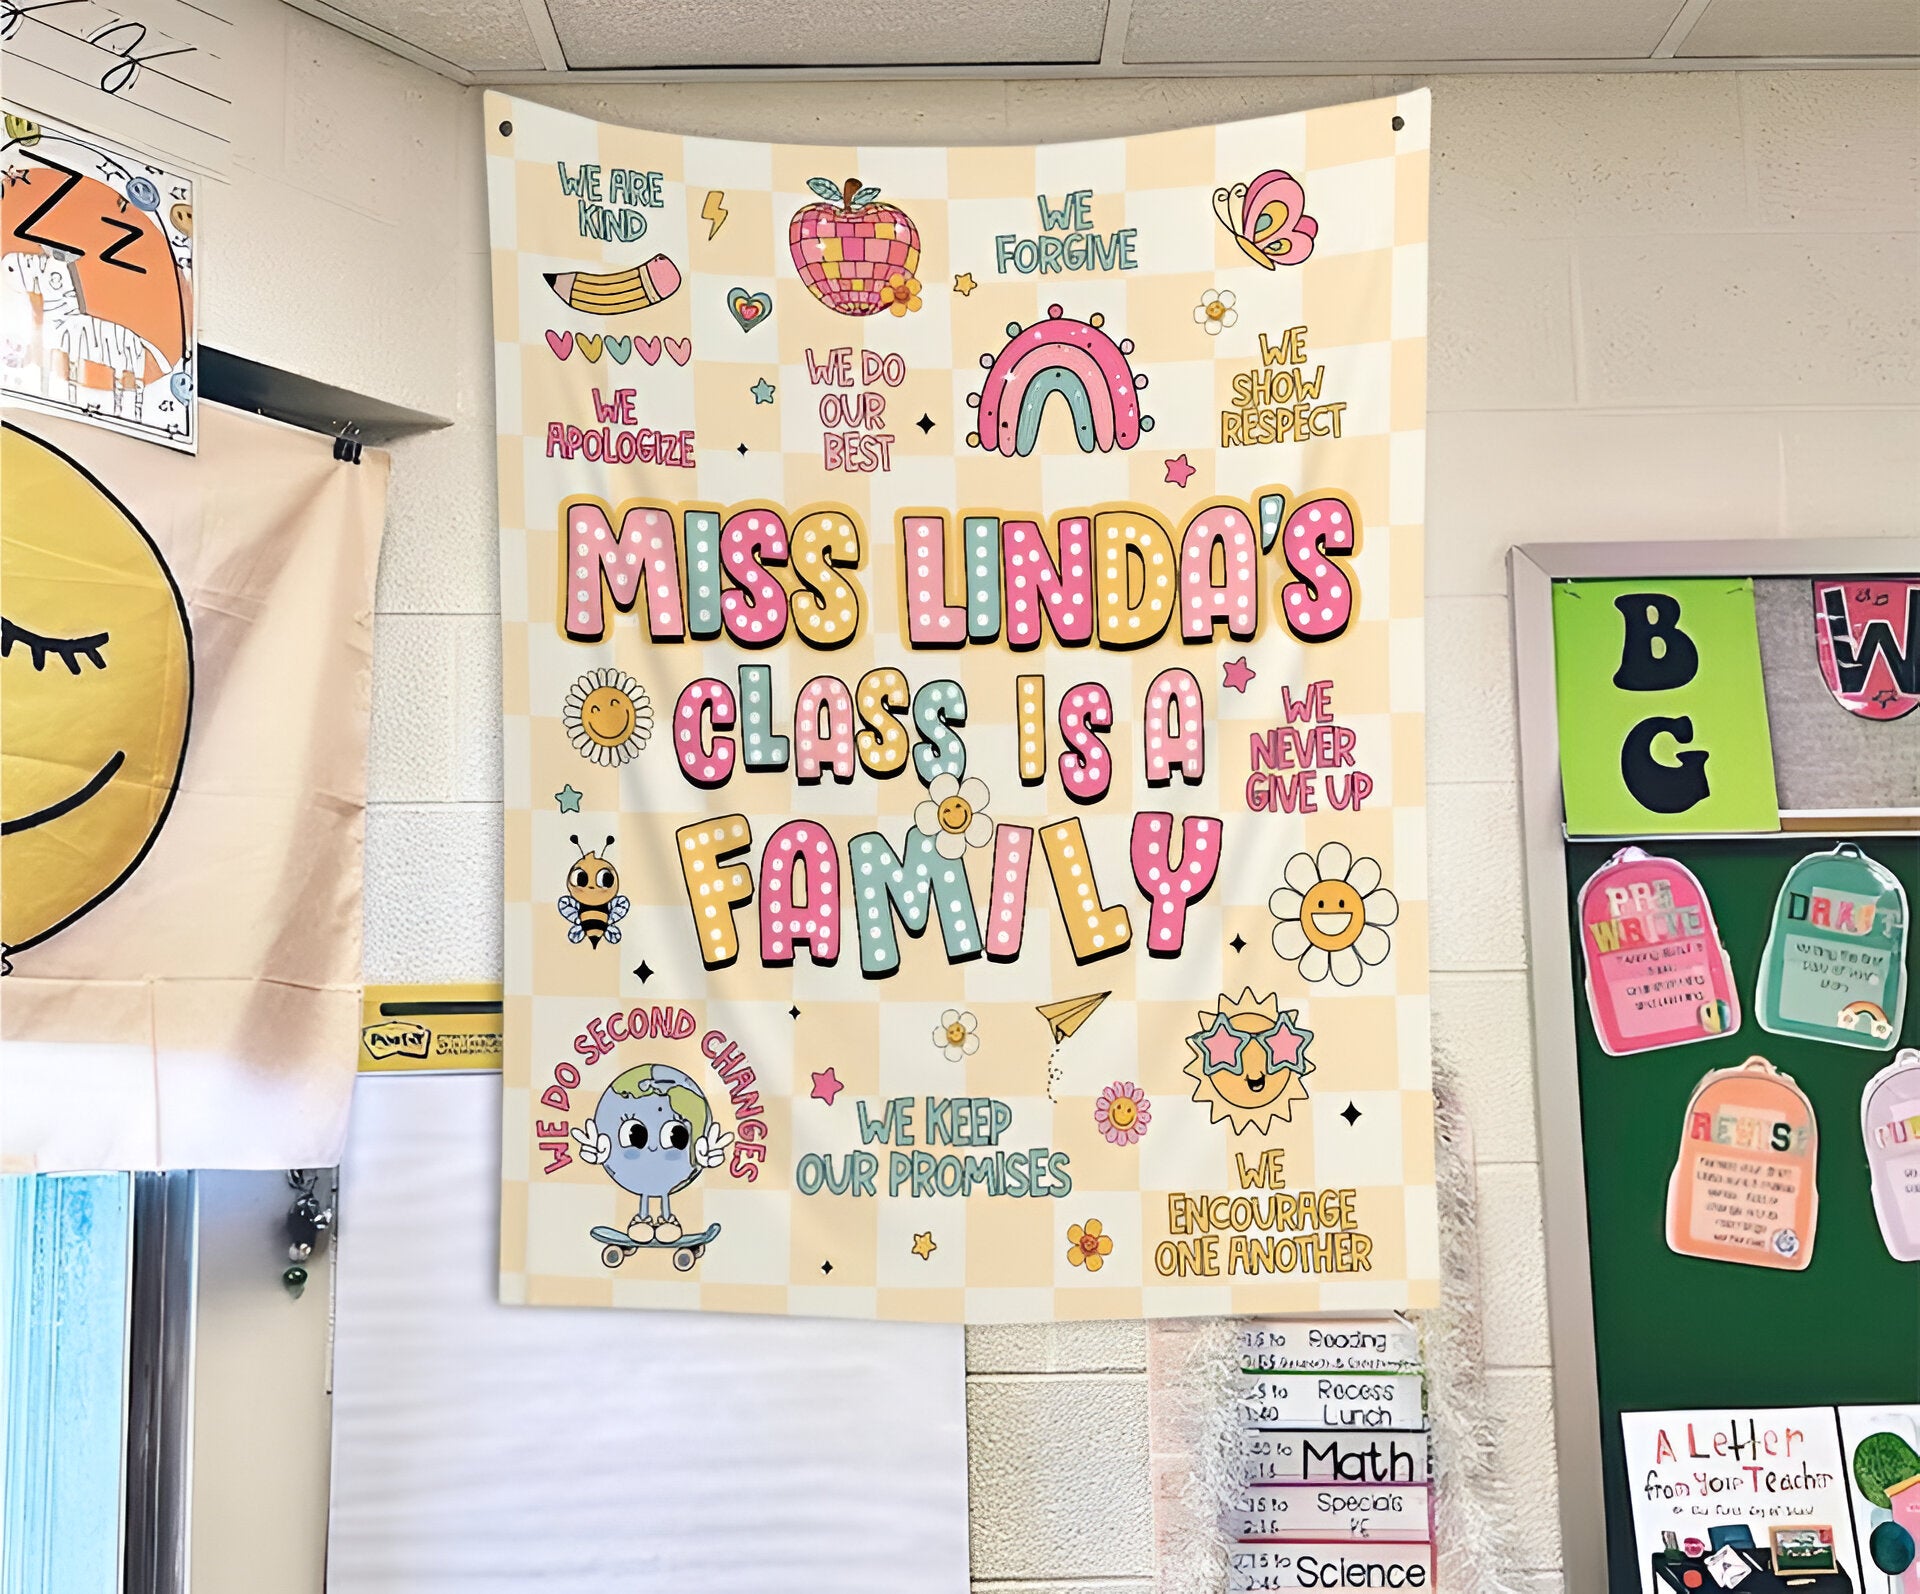 Zz
WE ARE
KIND
WE
FORGIVE
WE
APOLOGIZE
WE DO
OUR
BEST
WE
SHOW
RESPECT
MISS LINDA'S
CLASS IS A
FAMILY
WE
NEVER
GIVE UP
WE DO SECOND CHANGES
WE KEEP
OUR PROMISES
WE
ENCOURAGE
ONE ANOTHER
B
G
W
Recess
Lunch
Math
Science
A Letter
from Your Teacher